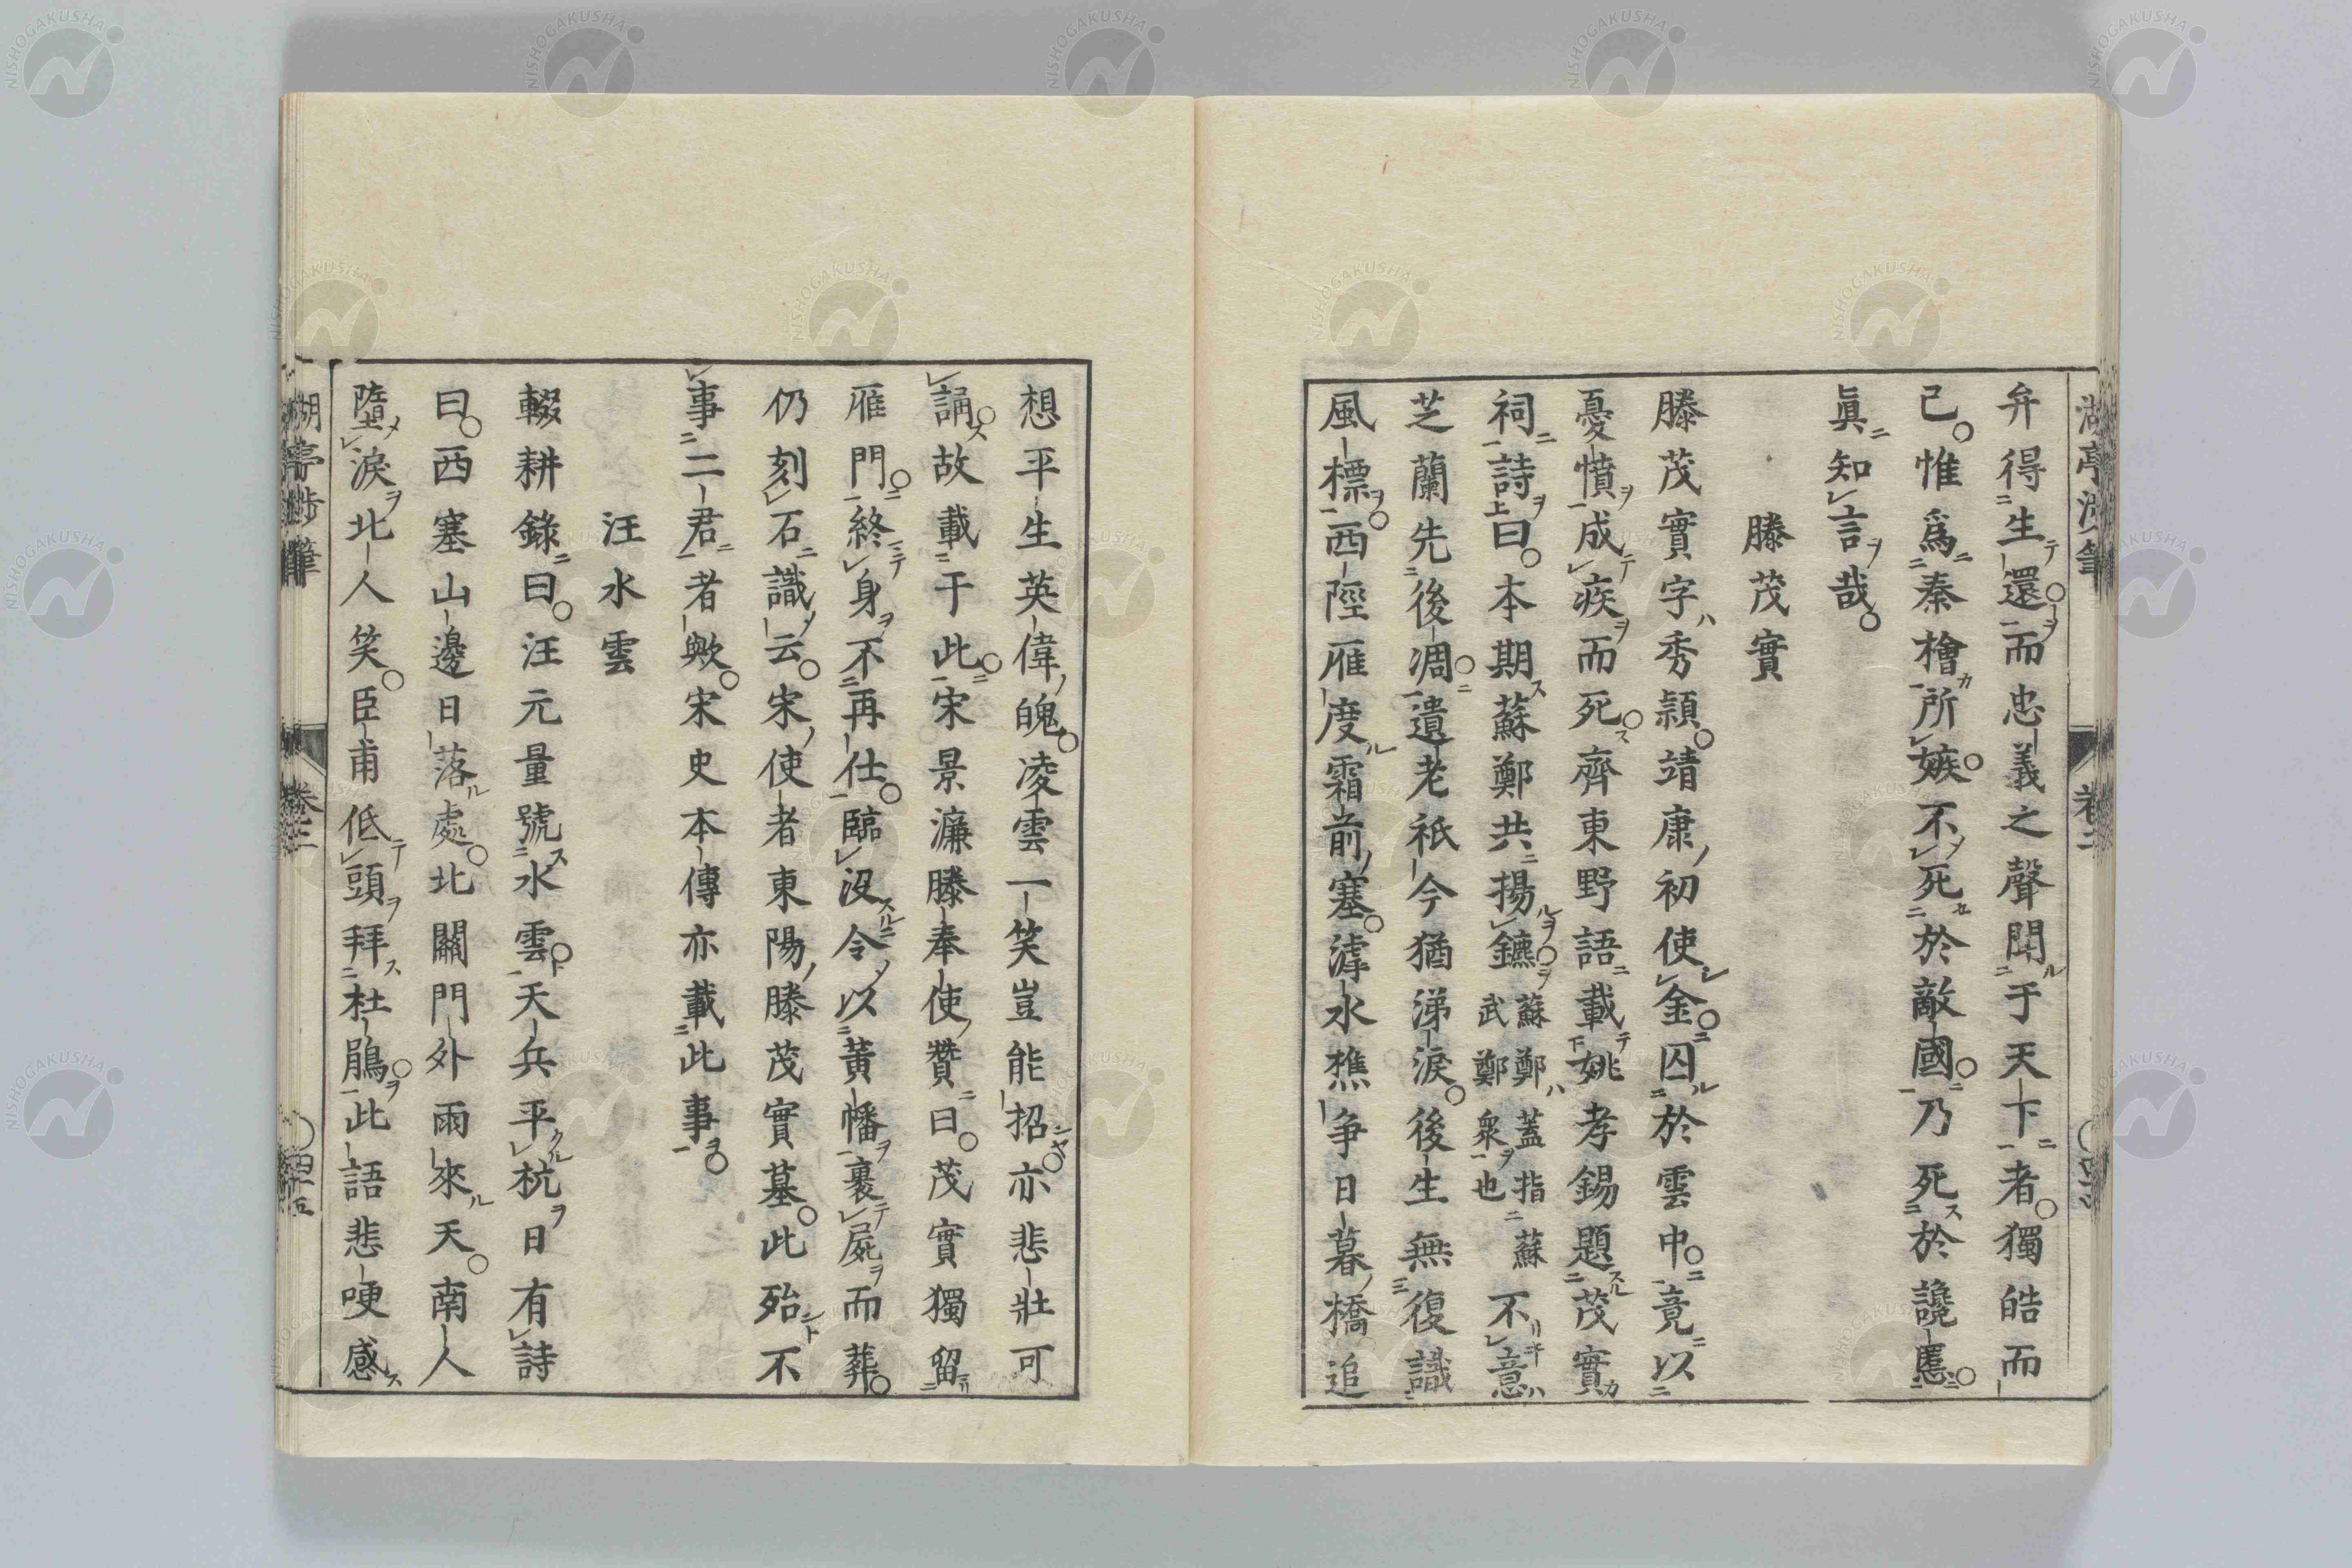 弁得生還而忠義之聲聞于天下者獨皓而
已惟爲秦檜所嫉不死於敵國乃死於讒慝
眞知言哉
滕茂實
滕茂實字秀頴靖康初使金囚於雲中竟以
憂憤成疾而死齊東野語載姚孝錫題茂實
祠詩曰本期蘇鄭共揚鑣蘇鄭蓋指蘇武鄭衆也不意
芝蘭先後凋遺老祇今猶涕淚後生無復識
風標西陘雁度霜前塞滹水樵爭日暮橋追
想平生英偉魄凌雲一笑豈能招亦悲壯可
誦故載于此宋景濂滕奉使贊曰茂實獨留
雁門終身不再仕臨沒令以黃幡裹屍而葬
仍刻石識云宋使者東陽滕茂實墓此殆不
事二君者歟宋史本傳亦載此事
汪水雲
輟耕錄曰汪元量號水雲天兵平杭日有詩
曰西塞山邊日落處北關門外雨來天南人
墮淚北人笑臣甫低頭拜杜鵑此語悲哽感
湖亭渉筆 卷二